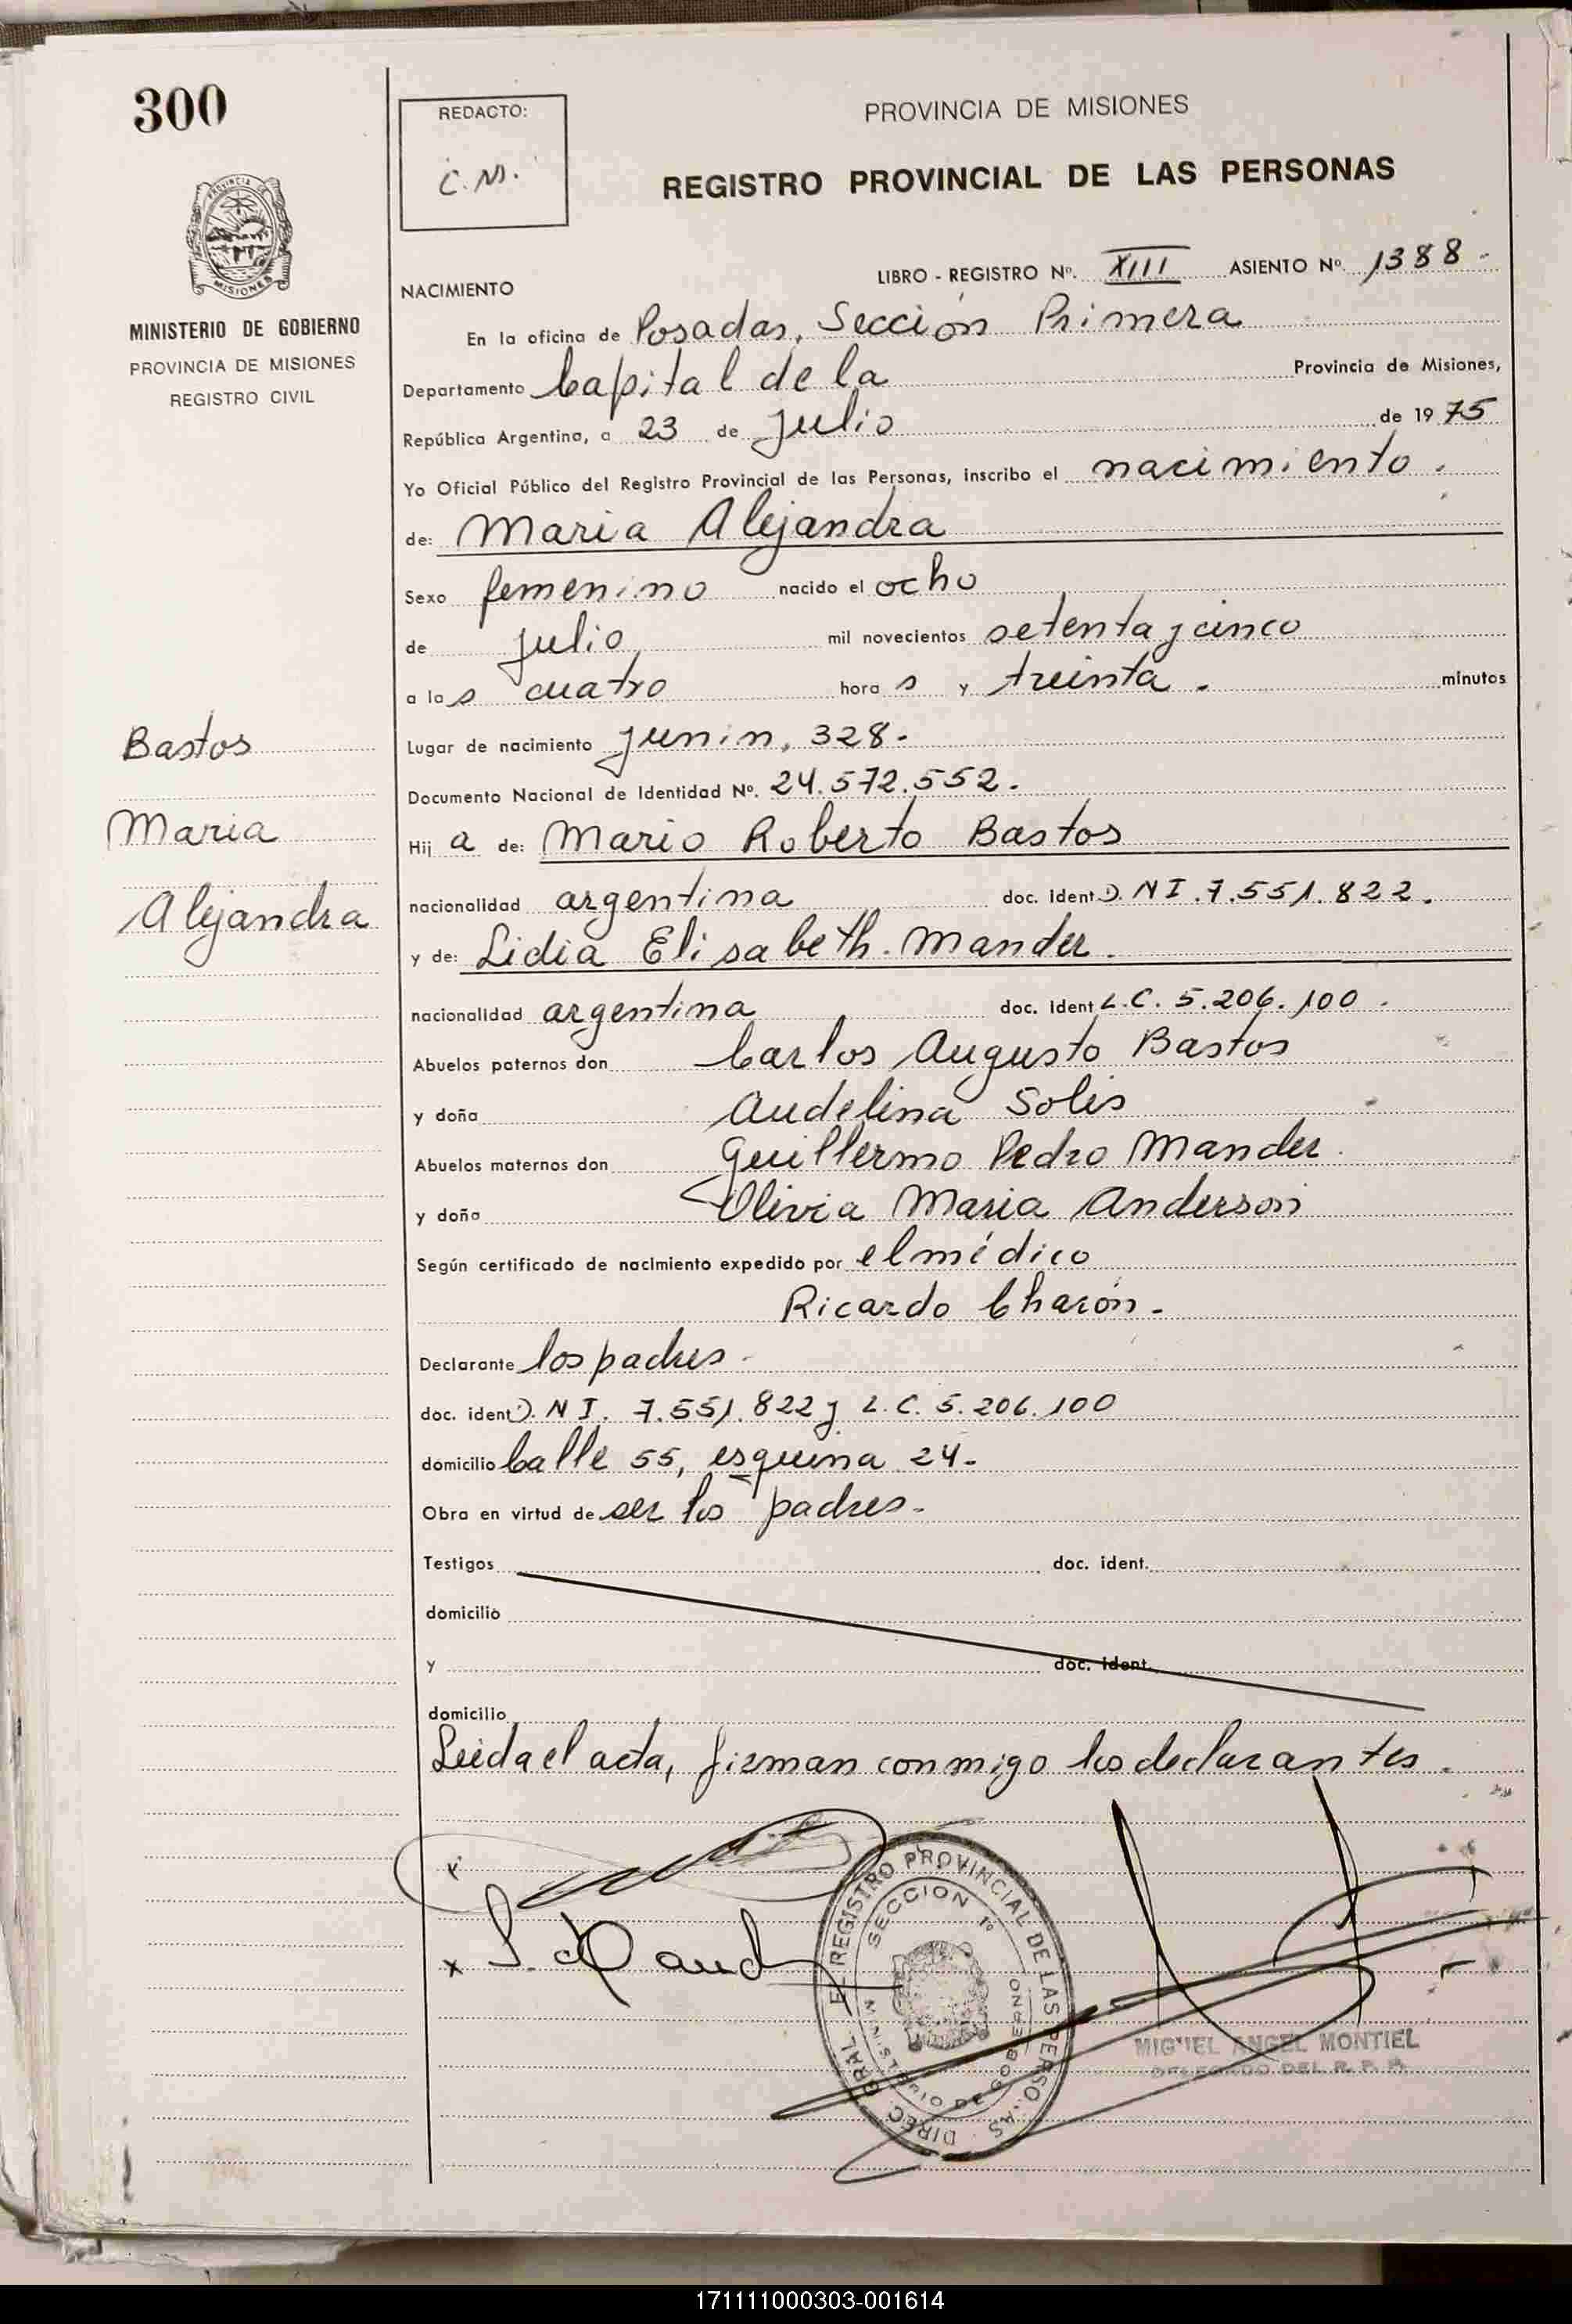 300
REDACTO:
C.M.
PROVINCIA DE MISIONES
REGISTRO PROVINCIAL DE LAS PERSONAS
PROVINCIA DE
MISIONES
MINISTERIO DE GOBIERNO
PROVINCIA DE MISIONES
REGISTRO CIVIL
LIBRO - REGISTRO Nº. XIII ASIENTO Nº. 1388-
NACIMIENTO
En la oficina de Posadas, Sección Primera
Departamento Capital de la Provincia de Misiones,
República Argentina, a 23 de Julio de 1975
Yo Oficial Público del Registro Provincial de las Personas, inscribo el nacimiento.
de: Maria Alejandra
Sexo femenino nacido el ocho
de julio mil novecientos setenta y cinco
a las cuatro horas y treinta. minutos
Lugar de nacimiento Junin, 328.-
Documento Nacional de Identidad Nº. 24.572.552.
Hija de: Mario Roberto Bastos
nacionalidad argentina doc. ident D.N I.7.551.822.
y de: Lidia Elisabeth. Mander.
nacionalidad argentina doc. ident L.C. 5.206.100.
Abuelos paternos don Carlos Augusto Bastos
y doña Audelina Solis
Abuelos maternos don Guillermo Pedro Mander.
y doña Olivia Maria Anderson
Según certificado de nacimiento expedido por el médico
Ricardo Charón.-
Declarante los padres.-
doc. ident D. N I. 7.551.822 y L.C. 5.206.100
domicilio Calle 55, esquina 24.-
Obra en virtud de ser los padres.-
Testigos doc. ident.
domicilio
y doc. ident.
domicilio
Leida el acta, firman conmigo los declarantes.
Bastos
Maria
Alejandra
x
x
DIREC. GRAL. EL REGISTRO PROVINCIAL DE LAS PERSONAS
SECCION 1º
MINISTERIO DE GOBIERNO
MIGUEL ANGEL MONTIEL
DELEGADO DEL R. P. P.
171111000303-001614